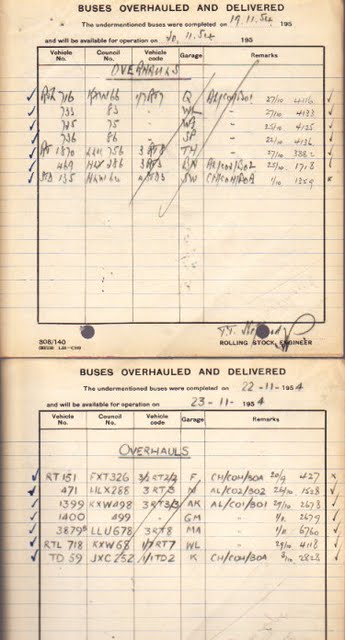 BUSES OVERHAULED AND DELIVERED
The undermentioned buses were completed on 19.11.54 195
and will be available for operation on 20.11.54 195
Vehicle No. Council No. Vehicle code Garage Remarks
OVERHAULS
RTL 716 KXW66 1/7RT7 Q AL/CO1/BO1 27/10
733 83 WL 27/10 4133
725 75 25/10 4125
736 86 SP 25/10 4136
RT 1870 756 3RT8 TH 27/10
469 HLX 286 3RT3 BN AL/CO2/BO2 25/10 1718
STD 135 SW CH/COH/BOA 1/10 1359 x
T.T.
308/140 ROLLING STOCK ENGINEER
BUSES OVERHAULED AND DELIVERED
The undermentioned buses were completed on 22-11-1954
and will be available for operation on 23-11-1954
Vehicle No. Council No. Vehicle code Garage Remarks
OVERHAULS
RT151 FXT326 3/2RT2/2 F CH/COH/BOA 20/9 427 x
471 HLX288 3RT3 N AL/CO2/BO2 26/10 1528
1399 KXW498 3RT3/3 AK AL/CO1/BO1 29/10 2678
1400 499 GM 1/11 2679
3879 LLU678 3RT8 MA 1/11 6760
RTL 718 KXW68 1/7RT7 WL 29/10 4118
TD 59 JXC252 1/1TD2 K CH/COH/BOA 5/10 2828